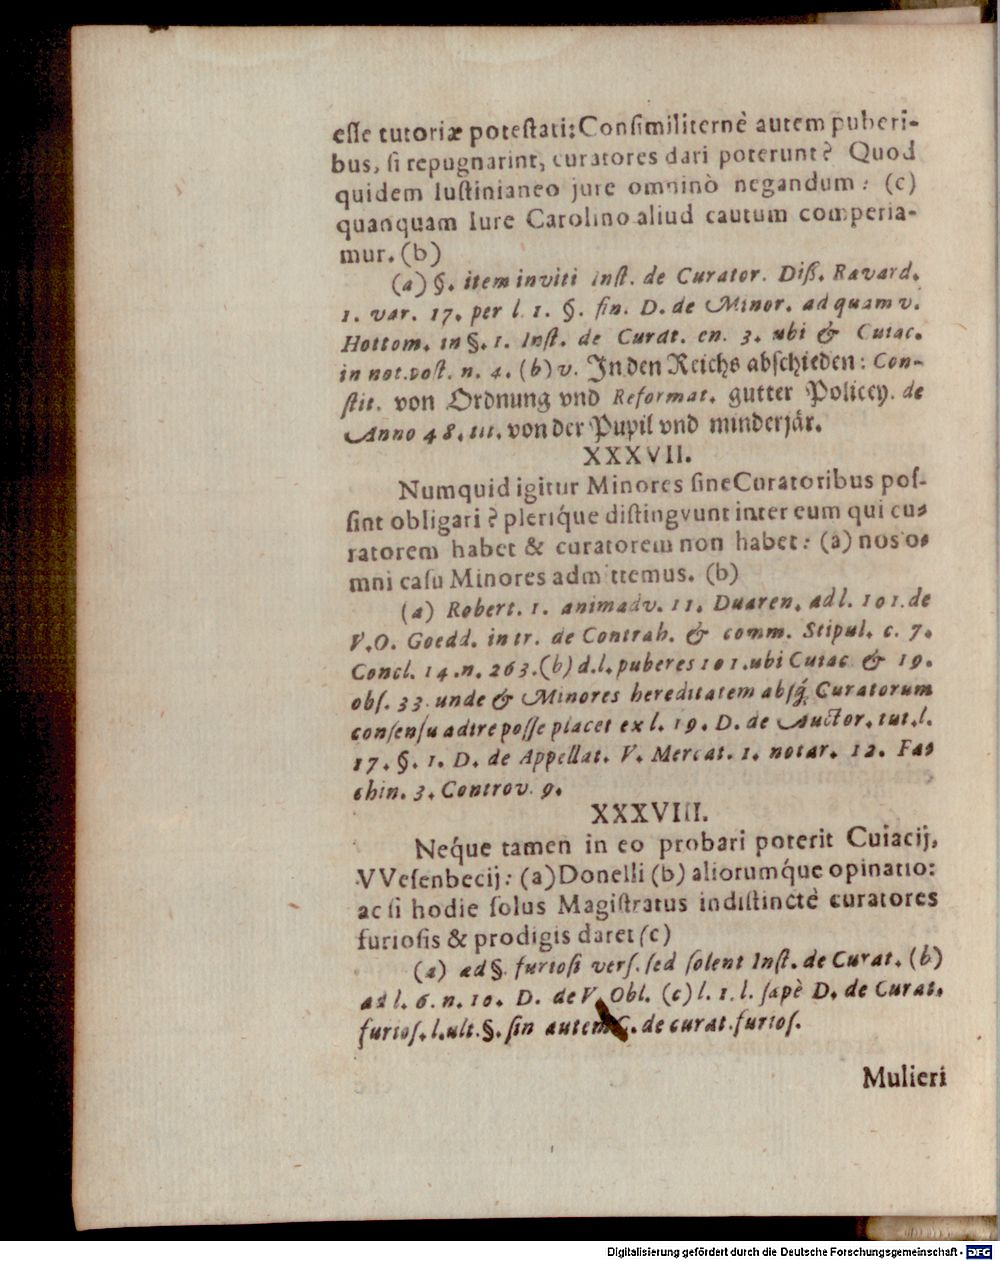 esse tutoriæ potestati: Consimiliternè autem puberi-
bus, si repugnarint, curatores dari poterunt? Quod
quidem Iustinianeo jure omninò negandum: (c)
quanquam Iure Carolino aliud cautum comperia-
mur. (b)
(a) §. item inviti Inst. de Curator. Diß. Ravard.
1. var. 17. per l. 1. §. fin. D. de Minor. ad quam v.
Hottom. in §. 1. Inst. de Curat. en. 3. ubi & Cuiac.
in not. post. n. 4. (b) v. In den Reichs abschieden: Con-
stit. von Ordnung vnd Reformat. gutter Policey. de
Anno 48. tit. von der Pupil vnd minderjär.
XXXVII.
Numquid igitur Minores sine Curatoribus pos-
sint obligari? pleriq́ue distingvunt inter eum qui cu-
ratorem habet & curatorem non habet: (a) nos o-
mni casu Minores admittemus. (b)
(a) Robert. 1. animadv. 11. Duaren. ad l. 101. de
V. O. Goedd. in tr. de Contrah. & comm. Stipul. c. 7.
Concl. 14. n. 263. (b) d. l. puberes 101. ubi Cuiac. & 19.
obs. 33. unde & Minores hereditatem absq́; Curatorum
consensu adire posse placet ex l. 19. D. de Auctor. tut. l.
17. §. 1. D. de Appellat. V. Mercat. 1. notar. 12. Fa-
chin. 3. Controv. 9.
XXXVIII.
Neq́ue tamen in eo probari poterit Cuiacij,
VVesenbecij: (a) Donelli (b) aliorumq́ue opinatio:
ac si hodie solus Magistratus indistinctè curatores
furiosis & prodigis daret (c)
(a) ad §. furiosi vers. sed solent Inst. de Curat. (b)
ad l. 6. n. 10. D. de V. Obl. (c) l. 1. l. sæpè D. de Curat.
furios. l. ult. §. sin autem C. de curat. furios.
Mulieri
Digitalisierung gefördert durch die Deutsche Forschungsgemeinschaft - DFG